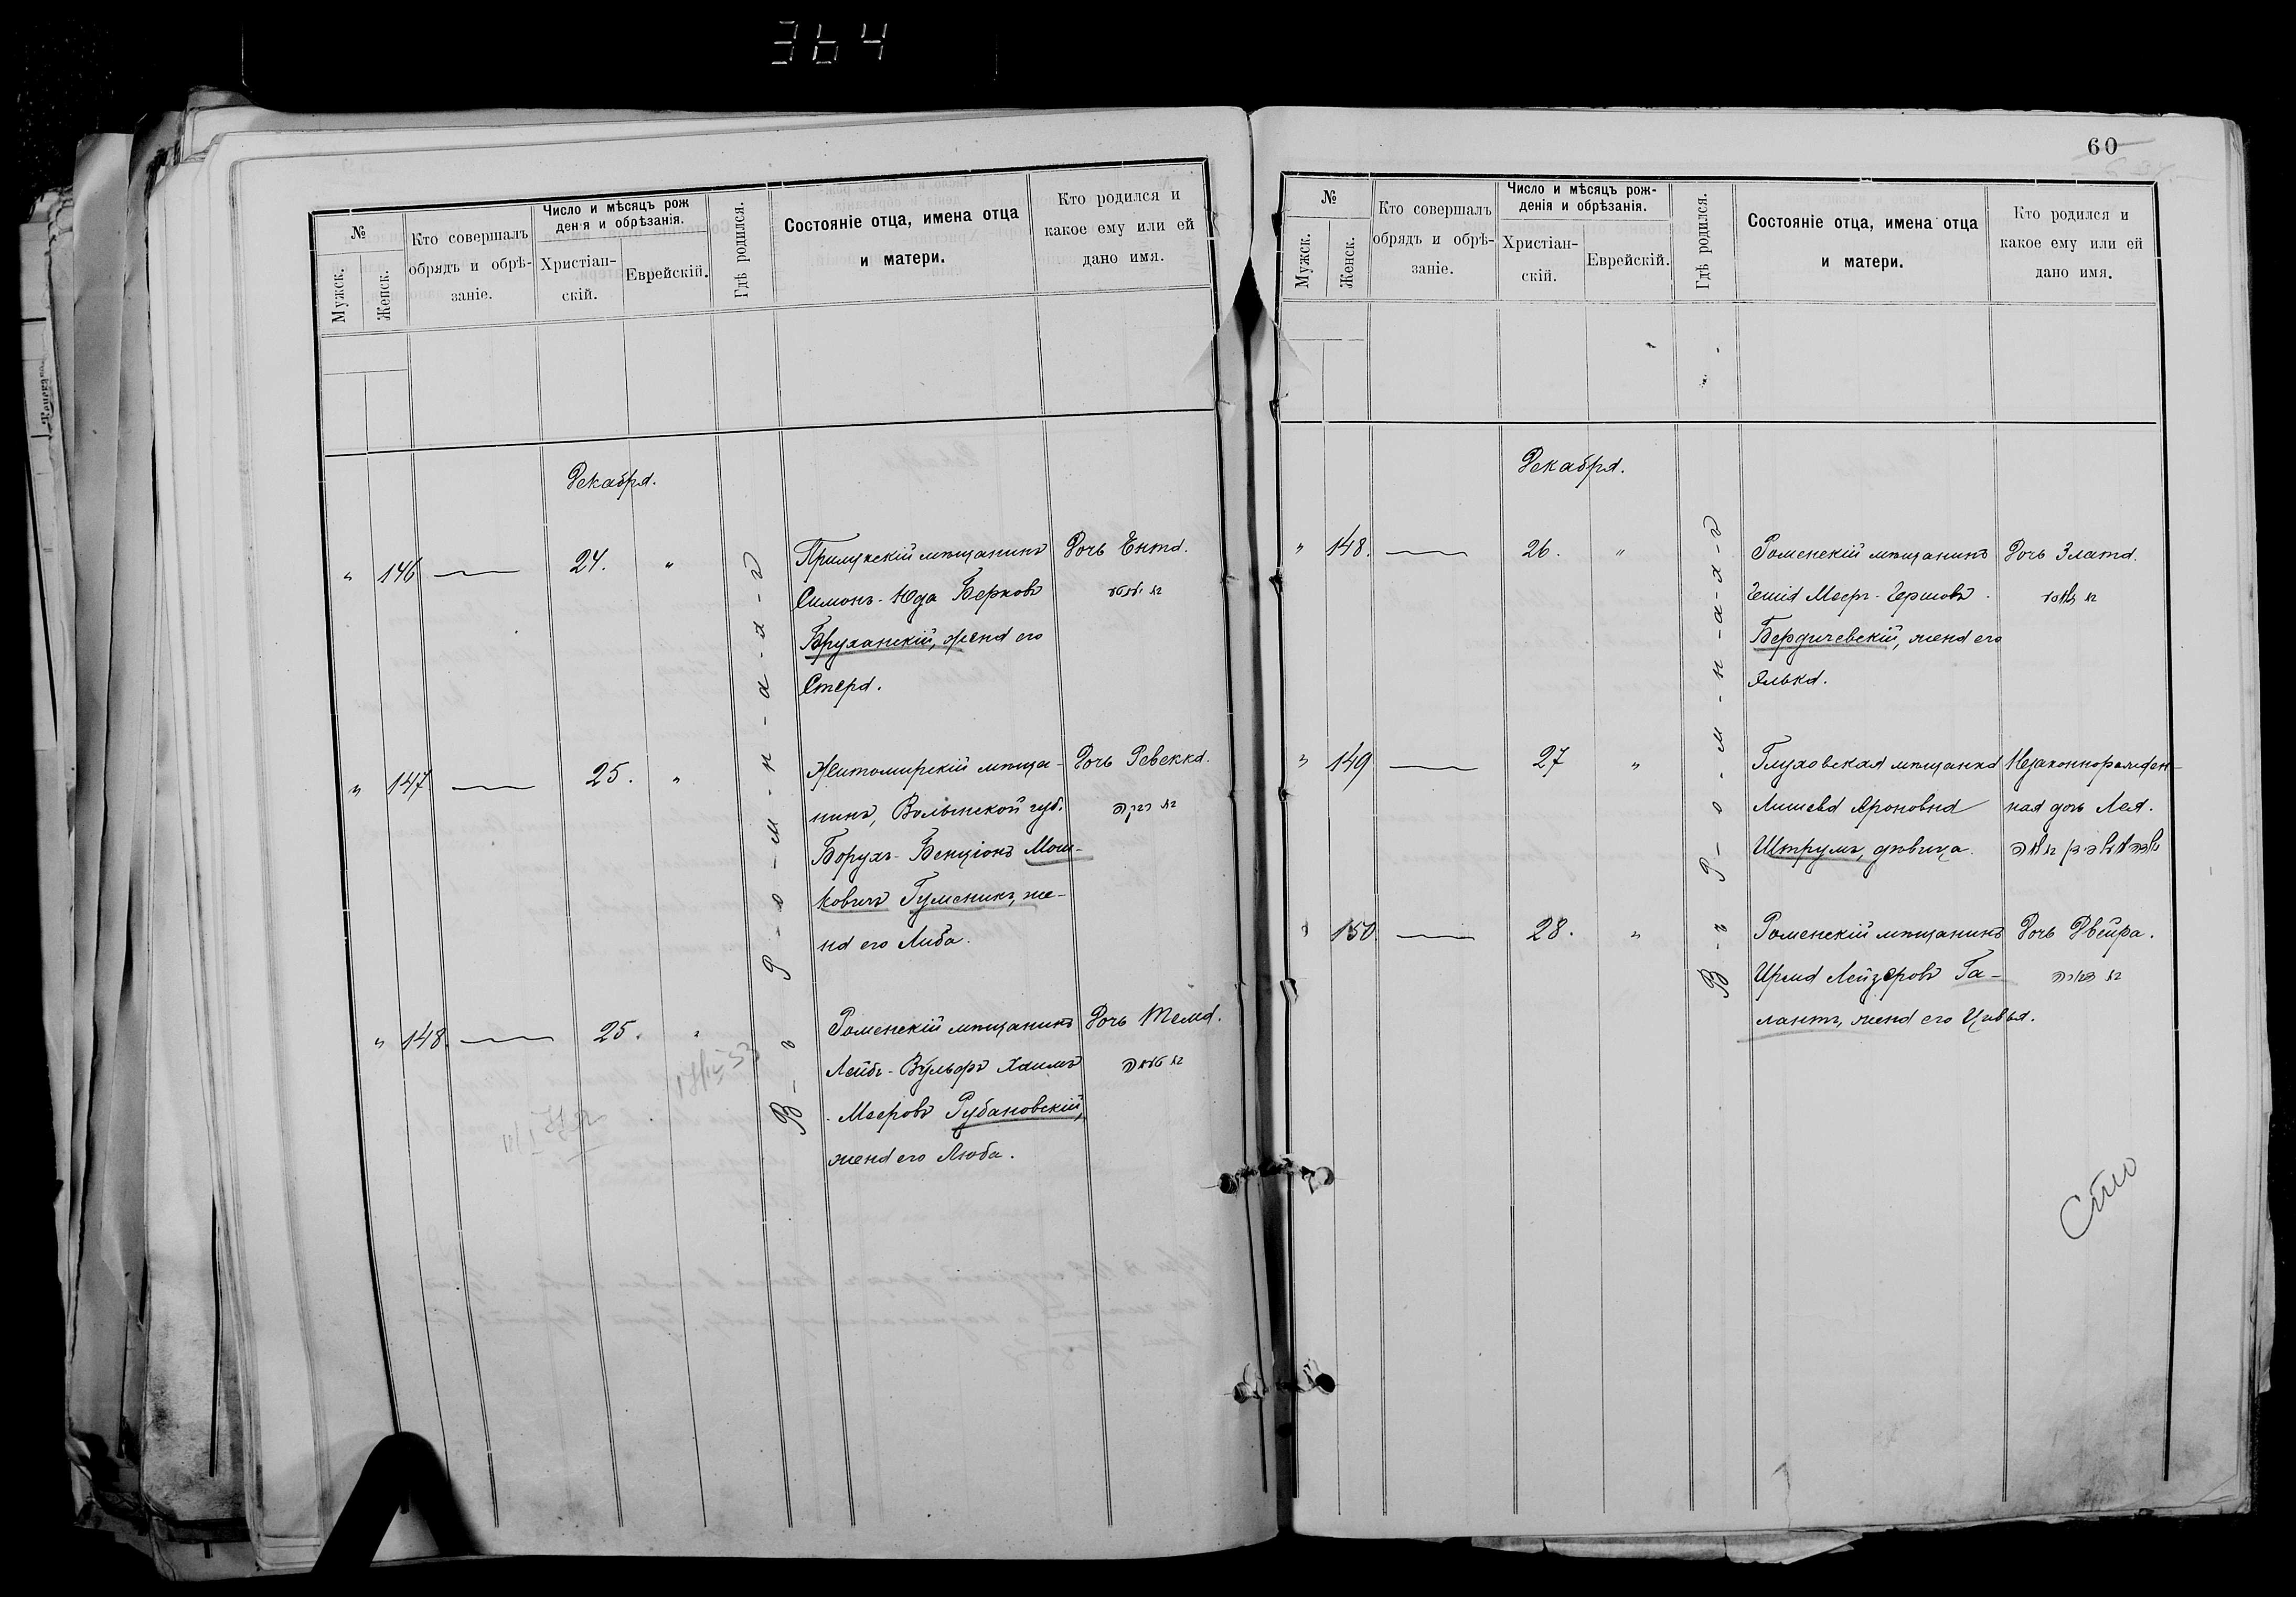 364
№
Мужск.
Женск.
Кто совершалъ
обрядъ и обрѣ-
заніе.
Число и мѣсяцъ рож
денія и обрѣзанія.
Христіан-
скій.
Еврейскій.
Гдѣ родился.
Состояніе отца, имена отца
и матери.
Кто родился и
какое ему или ей
дано имя.
Декабря.
В-ъ Р-о-м-н-а-х-ъ
" 146 — 24. "
Прилукскій мѣщанинъ
Симонъ-Юда Берковъ
Бруханскій, жена его
Стера.
Дочь Ента.
" 147 — 25. "
Житомирскій мѣща-
нинъ, Волынской губ.
Борухъ-Бенціонъ Мош-
ковичъ Гуменикъ, же-
на его Либа.
Дочь Ревекка.
" 148 — 25. "
Роменскій мѣщанинъ
Лейбъ-Вульфъ Хаимъ
-Мееровъ Рубановскій,
жена его Люба.
Дочь Тема.
60
№
Мужск.
Женск.
Кто совершалъ
обрядъ и обрѣ-
заніе.
Число и мѣсяцъ рож-
денія и обрѣзанія.
Христіан-
скій.
Еврейскій.
Гдѣ родился.
Состояніе отца, имена отца
и матери.
Кто родился и
какое ему или ей
дано имя.
Декабря.
В-ъ Р-о-м-н-а-х-ъ
" 148. — 26. "
Роменскій мѣщанинъ
Меер-Гершовъ
Бердичевскій, жена его
Элька.
Дочь Злата.
" 149 — 27 "
Глуховская мѣщанка
Ароновна
Штрумъ, дѣвица.
Незаконнорожден-
ная дочь Лея.
" 150. — 28. "
Роменскій мѣщанинъ
Ирма Лейзеровъ Га-
лантъ, жена его Цивья.
Дочь Двейра.